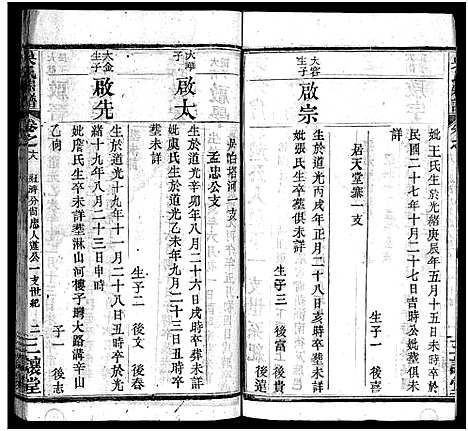 妣王氏生於光緒庚辰年五月十五日戌時卒於
民國二十七年十月二十七日吉時公妣墓俱未
詳
生子一 後喜
居天堂寨一支
大容生子
啟宗
生於道光丙戌年正月二十八日亥時卒墓未詳
妣張氏生卒墓俱未詳
生子三 後富 後貴 後遠
居白塔河一支
孟忠公支
大坤生子
啟太
生於道光辛卯年八月二十六日戌時卒葬未詳
妣吳氏生於道光乙未年九月二十三日丑時卒
葬未詳
生子二 後文 後春
大金生子
啟先
生於道光十九年十一月二十八日丑時卒於光
緒十九年八月二十三日申時
妣詹氏生卒未詳葬淋山河樓子塆大路溝辛山
乙向
子一 後志
吳氏宗譜
卷之六
經濟分啟唐人遷公一支世紀
二
三讓堂